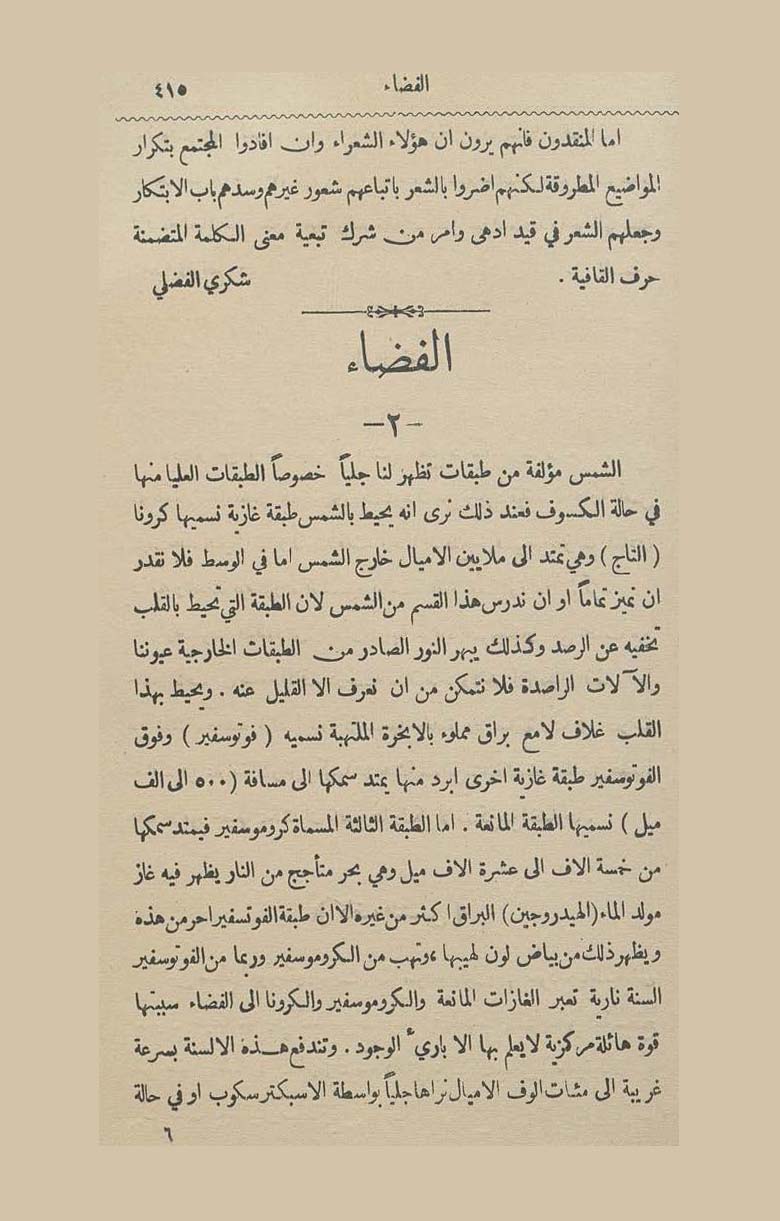 الفضاء ٤١٥
اما المنقدون فانهم يرون ان هؤلاء الشعراء وان افادوا المجتمع بتكرار
المواضيع المطروقة لكنهم اضروا بالشعر باتباعهم شعور غيرهم وسدهم باب الابتكار
وجعلهم الشعر في قيد ادهى وامر من شرك تبعية معنى الكلمة المتضمنة
حرف القافية . شكري الفضلي
الفضاء
—٢—
الشمس مؤلفة من طبقات تظهر لنا جلياً خصوصاً الطبقات العليا منها
في حالة الكسوف فعند ذلك نرى انه يحيط بالشمس طبقة غازية نسميها كرونا
( التاج ) وهي تمتد الى ملايين الاميال خارج الشمس اما في الوسط فلا نقدر
ان نميز تماماً او ان ندرس هذا القسم من الشمس لان الطبقة التي تحيط بالقلب
تخفيه عن الرصد وكذلك يبهر النور الصادر من الطبقات الخارجية عيوننا
والآلات الراصدة فلا نتمكن من ان نعرف الا القليل عنه . ويحيط بهذا
القلب غلاف لامع براق مملوء بالابخرة الملتهبة نسميه ( فوتوسفير ) وفوق
الفوتوسفير طبقة غازية اخرى ابرد منها يمتد سمكها الى مسافة (٥٠٠ الى الف
ميل ) نسميها الطبقة المانعة . اما الطبقة الثالثة المسماة كروموسفير فيمتد سمكها
من خمسة الاف الى عشرة الاف ميل وهي بحر متأجج من النار يظهر فيه غاز
مولد الماء (الهيدروجين) البراق اكثر من غيره الا ان طبقة الفوتسفير احر من هذه
ويظهر ذلك من بياض لون لهيبها ،وتهب من الكروموسفير وربما من الفوتوسفير
السنة نارية تعبر الغازات المانعة والكروموسفير والكرونا الى الفضاء سببتها
قوة هائلة مركزية لا يعلم بها الا باريء الوجود . وتندفع هذه الالسنة بسرعة
غريبة الى مئات الوف الاميال نراها جلياً بواسطة الاسبكترسكوب او في حالة
٦